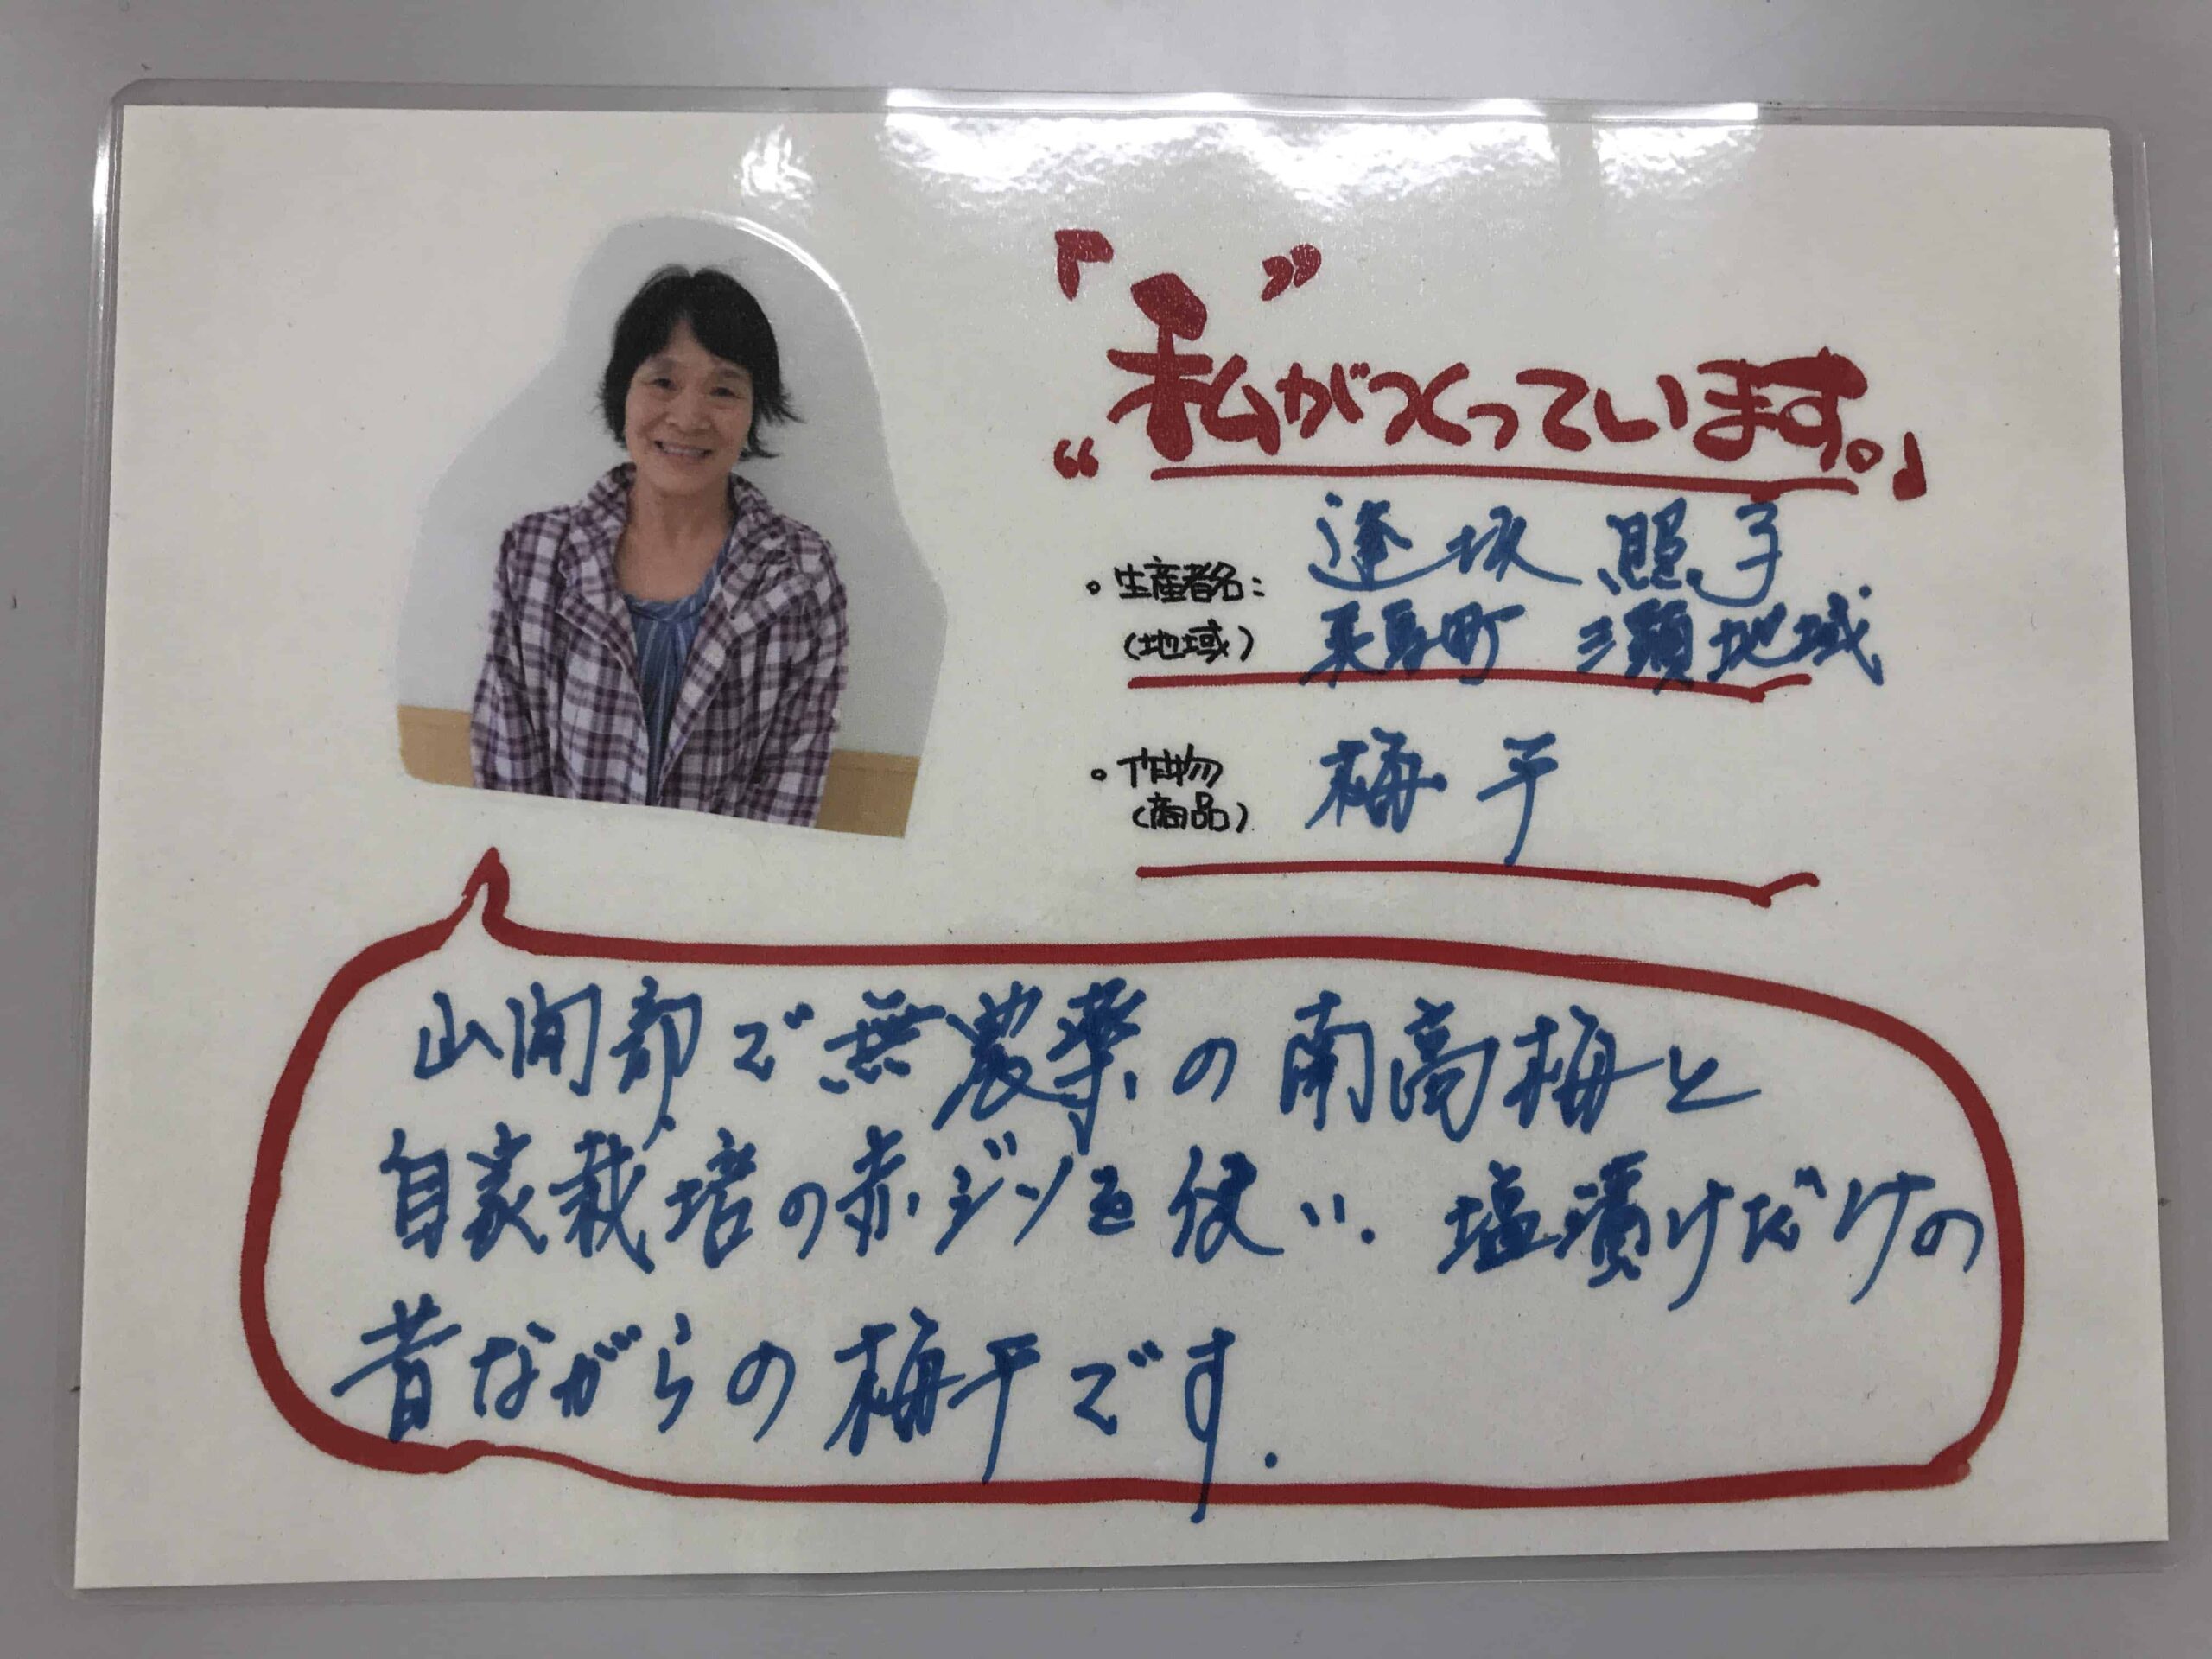 「私がつくっています。」
・生産者名: 逢坂 照子
(地域) 東吾町 三瀬地域
・作物 梅干
(商品)
山間部で無農薬の南高梅と
自家栽培の赤ジソを使い、塩漬けだけの
昔ながらの梅干です.